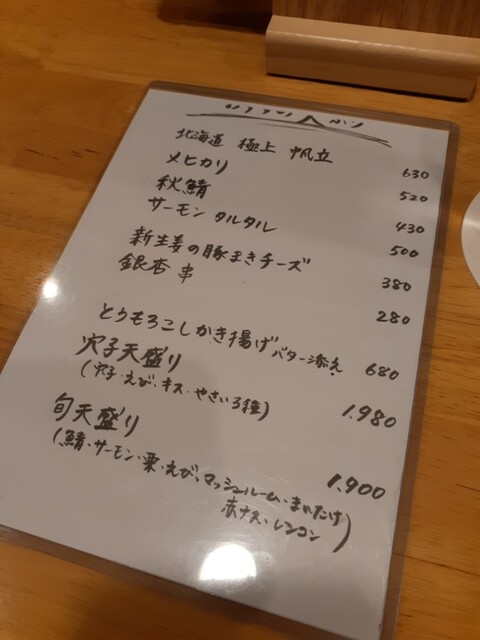 北海道 極上 帆立 630
メヒカリ 520
秋鯖 430
サーモン タルタル 500
新生姜の豚まきチーズ 380
銀杏 串 280
とうもろこしかき揚げ バター添え 680
穴子天盛り 1,980
(穴子・えび・キス・やさい3種)
旬天盛り 1,900
(鯖・サーモン・栗・えび・マッシュルーム・まいたけ
赤ナス・レンコン)